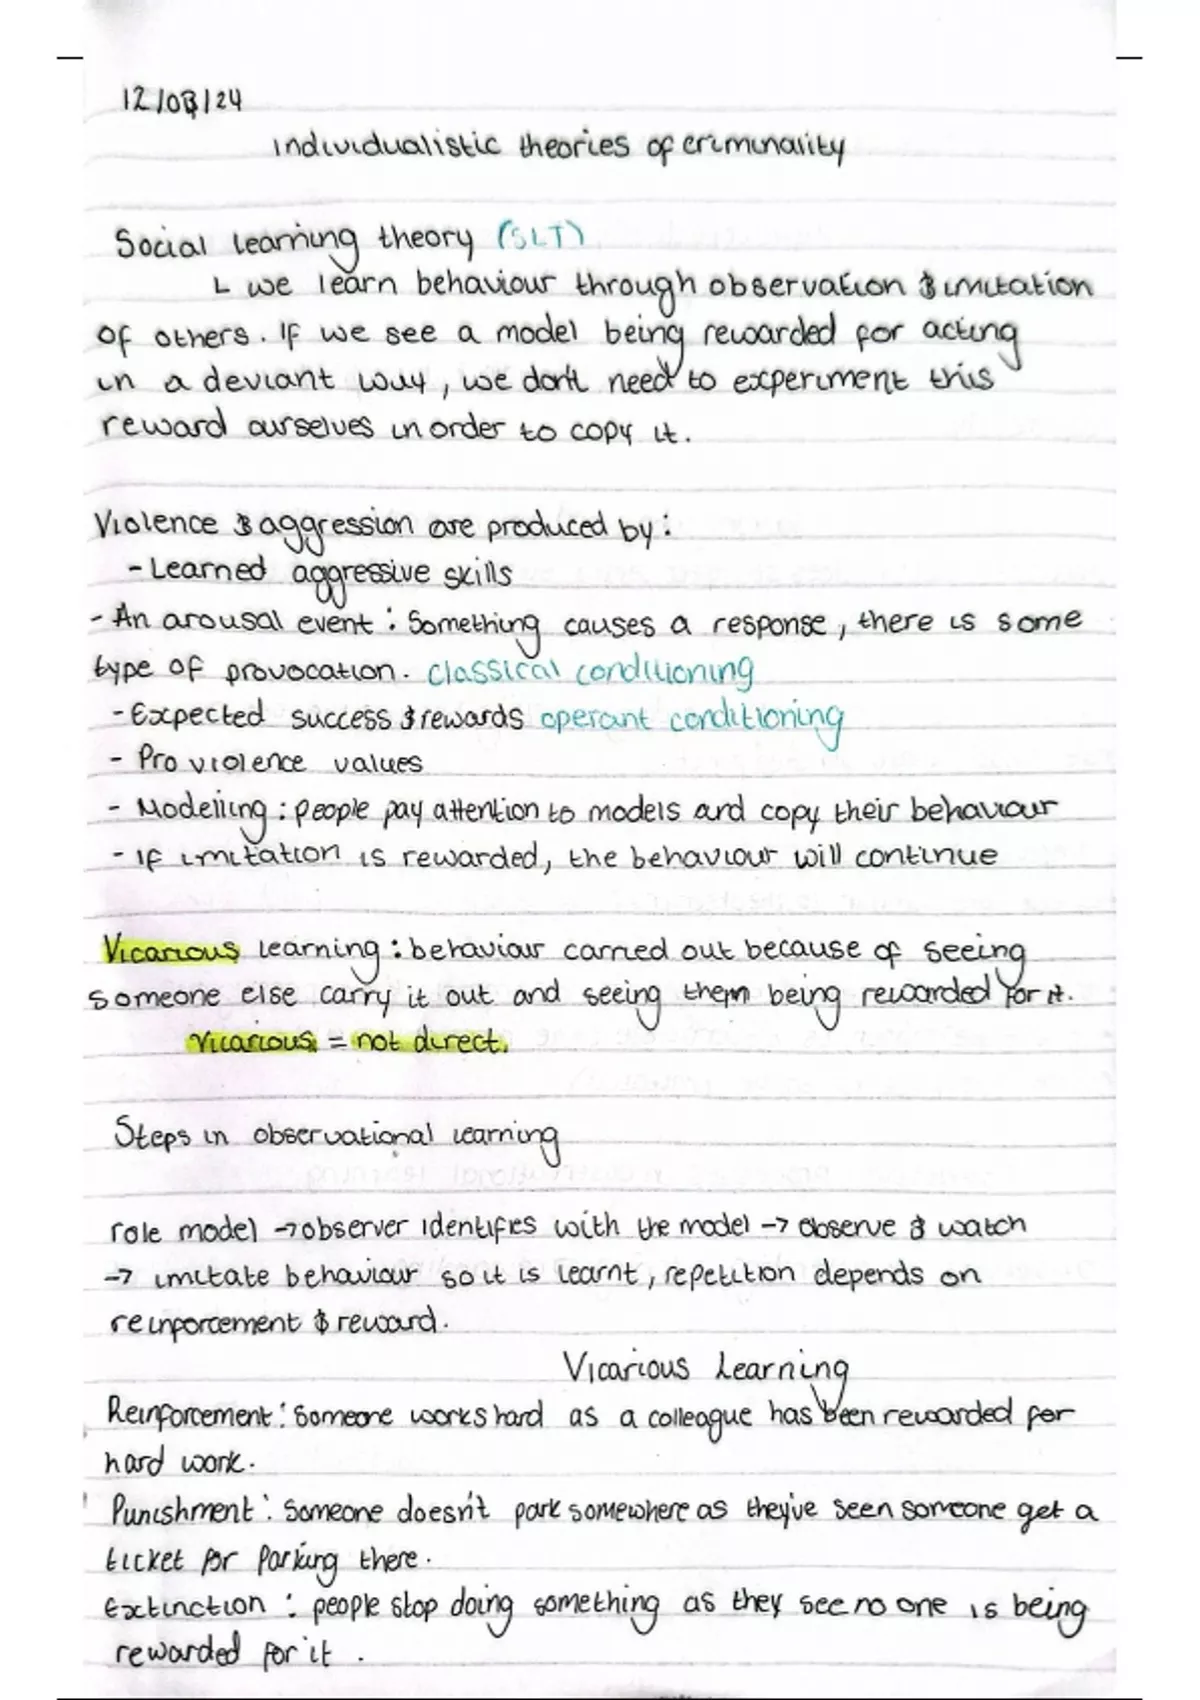 12/03/24
Individualistic theories of criminality
Social learning theory (SLT)
↳ we learn behaviour through observation & imitation
of others. If we see a model being rewarded for acting
in a deviant way, we don't need to experiment this
reward ourselves in order to copy it.
Violence & aggression are produced by:
- Learned aggressive skills
- An arousal event: Something causes a response, there is some
type of provocation. classical conditioning
- Expected success & rewards operant conditioning
- Pro violence values
- Modelling: people pay attention to models and copy their behaviour
- If imitation is rewarded, the behaviour will continue
Vicarious learning: behaviour carried out because of seeing
someone else carry it out and seeing them being rewarded for it.
Vicarious = not direct.
Steps in observational learning
role model → observer identifies with the model → observe & watch
→ imitate behaviour so it is learnt, repetition depends on
reinforcement & reward.
Vicarious Learning
Reinforcement: Someone works hard as a colleague has been rewarded for
hard work.
Punishment: Someone doesn't park somewhere as they've seen someone get a
ticket for parking there.
Extinction: people stop doing something as they see no one is being
rewarded for it.